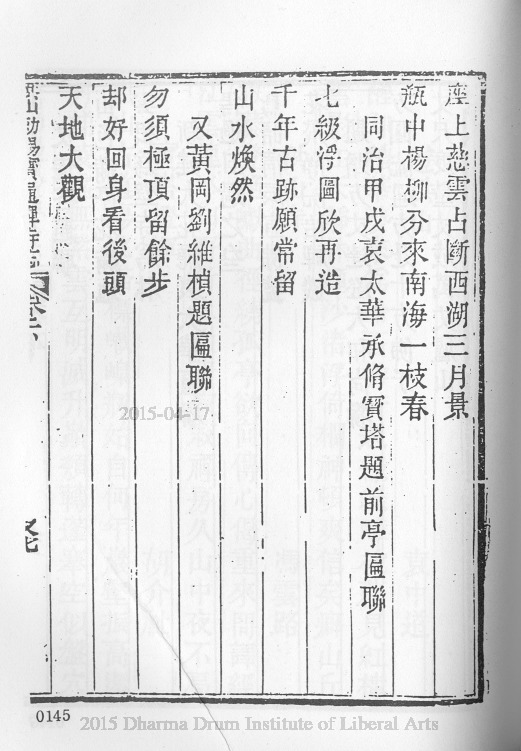 座上慈雲占斷西湖三月景
瓶中楊柳分來南海一枝春
同治甲戌袁太華承脩寳塔題前亭匾聯
七級浮圖欣再造
千年古跡願常留
山水煥然
又黃岡劉維楨題匾聯
勿須極頂留餘步
却好回身看後頭
天地大觀
卷六
又七
2015-04-17
0145
2015 Dharma Drum Institute of Liberal Arts